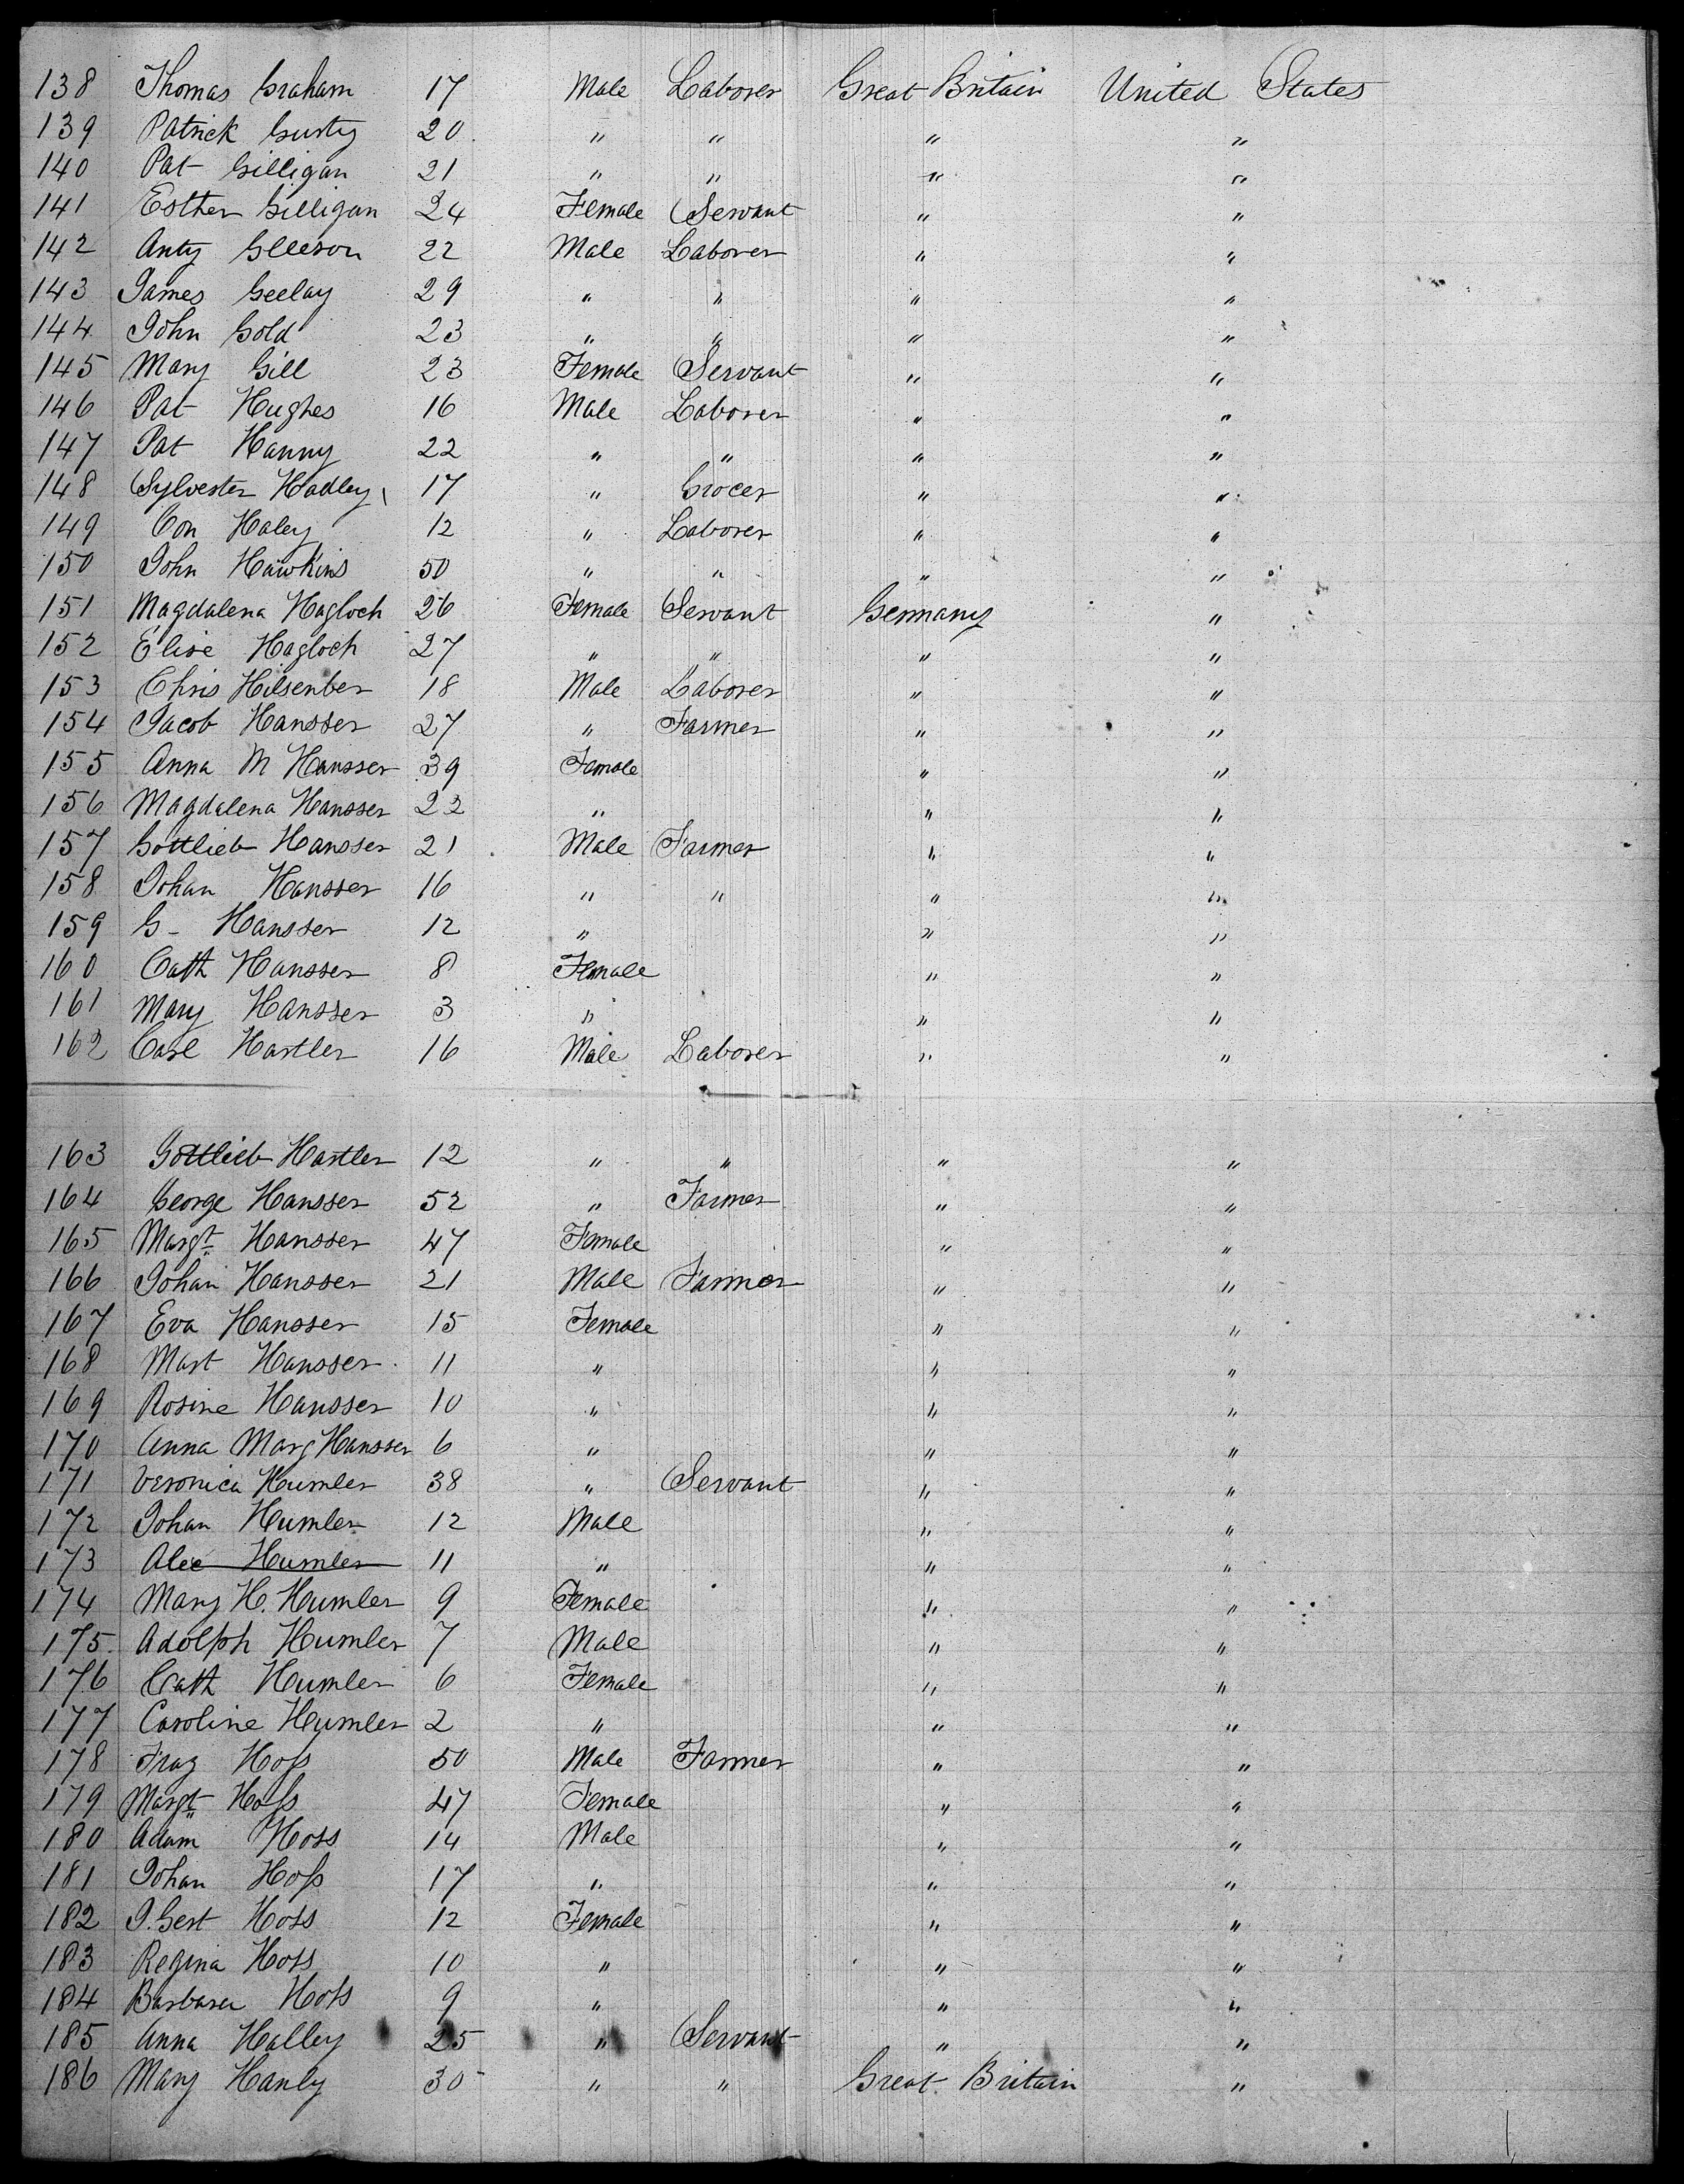 138 Thomas Graham 17 Male Laborer Great Britain United States
139 Patrick Gusty 20 " " " "
140 Pat Gilligan 21 " " " "
141 Esther Gilligan 24 Female Servant " "
142 Anty Gleeson 22 Male Laborer " "
143 James Geelay 29 " " " "
144 John Gold 23 " " " "
145 Mary Gill 23 Female Servant " "
146 Pat Hughes 16 Male Laborer " "
147 Pat Hanny 22 " " " "
148 Sylvester Hadley 17 " Grocer " "
149 Con Haley 12 " Laborer " "
150 John Hawkins 50 " " " "
151 Magdalena Hagloch 26 Female Servant Germany "
152 Elise Hagloch 27 " " " "
153 Chris Hilsenber 18 Male Laborer " "
154 Jacob Hansser 27 " Farmer " "
155 Anna M Hansser 39 Female " "
156 Magdalena Hansser 22 " " "
157 Gottlieb Hansser 21 Male Farmer " "
158 Johan Hansser 16 " " " "
159 G- Hansser 12 " " "
160 Cath Hansser 8 Female " "
161 Mary Hansser 3 " " "
162 Carl Hartler 16 Male Laborer " "
163 Gottlieb Hartler 12 " " " "
164 George Hansser 52 " Farmer " "
165 Margt Hansser 47 Female " "
166 Johan Hansser 21 Male Farmer " "
167 Eva Hansser 15 Female " "
168 Mart Hansser 11 " " "
169 Rosine Hansser 10 " " "
170 Anna Marg Hansser 6 " " "
171 Veronica Humler 38 " Servant " "
172 Johan Humler 12 Male " "
173 Alec Humler 11 " " "
174 Mary H. Humler 9 Female " "
175 Adolph Humler 7 Male " "
176 Cath Humler 6 Female " "
177 Caroline Humler 2 " " "
178 Fraz Hoss 50 Male Farmer " "
179 Margt Hoss 47 Female " "
180 Adam Hoss 14 Male " "
181 Johan Hoss 17 " " "
182 J. Gert Hoss 12 Female " "
183 Regina Hoss 10 " " "
184 Barbara Hoss 9 " " "
185 Anna Halley 25 " Servant " "
186 Mary Hanly 30 " " Great Britain "